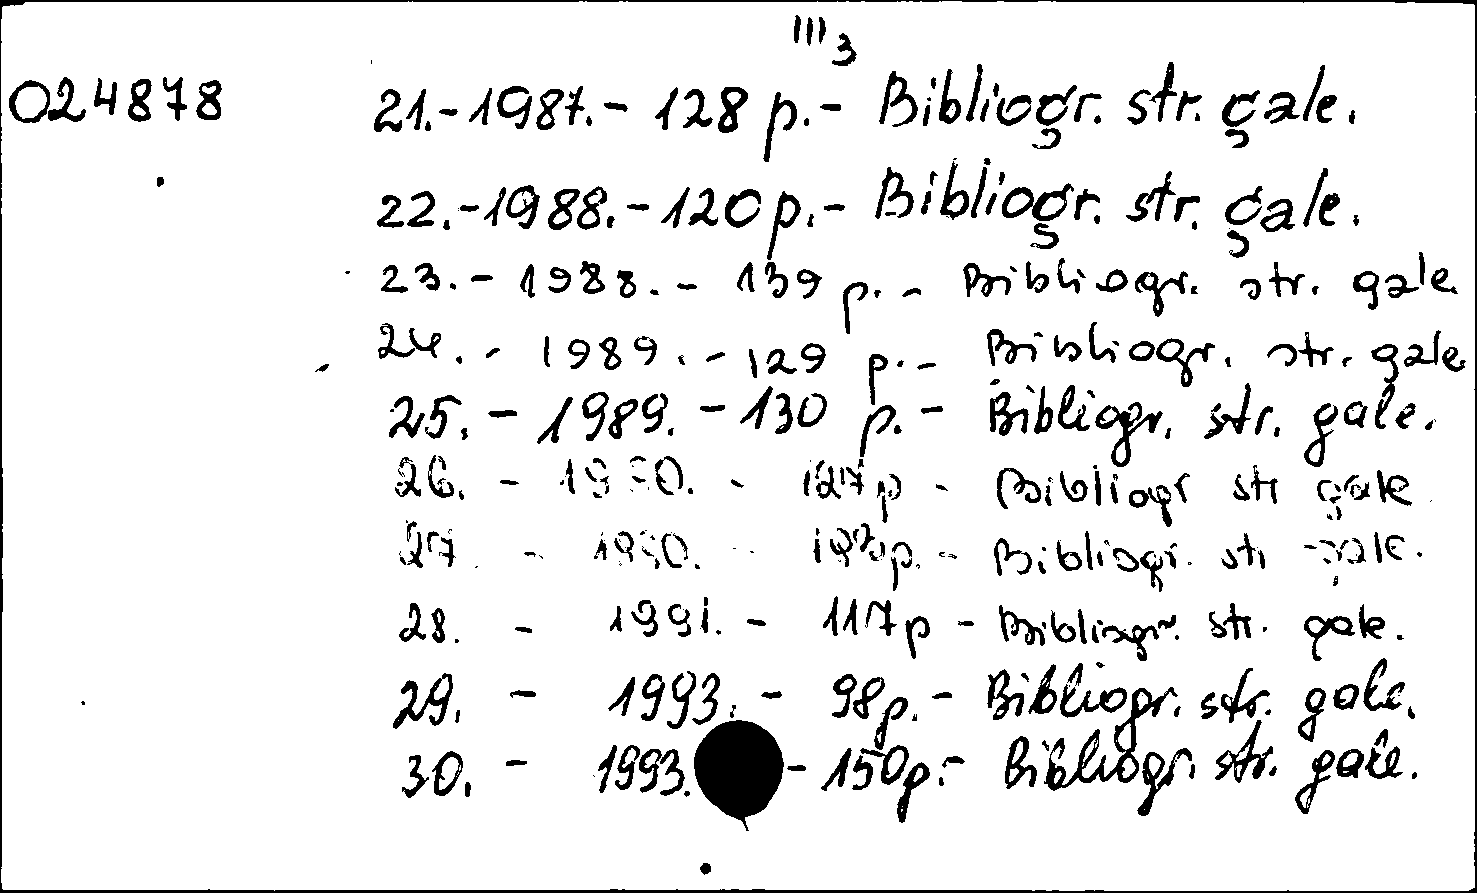 III 3
024878 21.-1987.- 128 p.- Bibliogr. str. gale.
22.-1988.-120p.- Bibliogr. str. gale.
23. - 1988. - 139 p. - Bibliogr. str. gale.
24. - 1989. - 129 p. - Bibliogr. str. gale.
25. - 1989. - 130 p. - Bibliogr. str. gale.
26. - 1990. - 127p - Bibliogr str gale
27 - 1990. - p. - Bibliogr. str gale.
28. - 1991. - 117p - Bibliogr. str. gale.
29. - 1993. - 98p. - Bibliogr. str. gale.
30. - 1993. - 150p.- Bibliogr. str. gale.